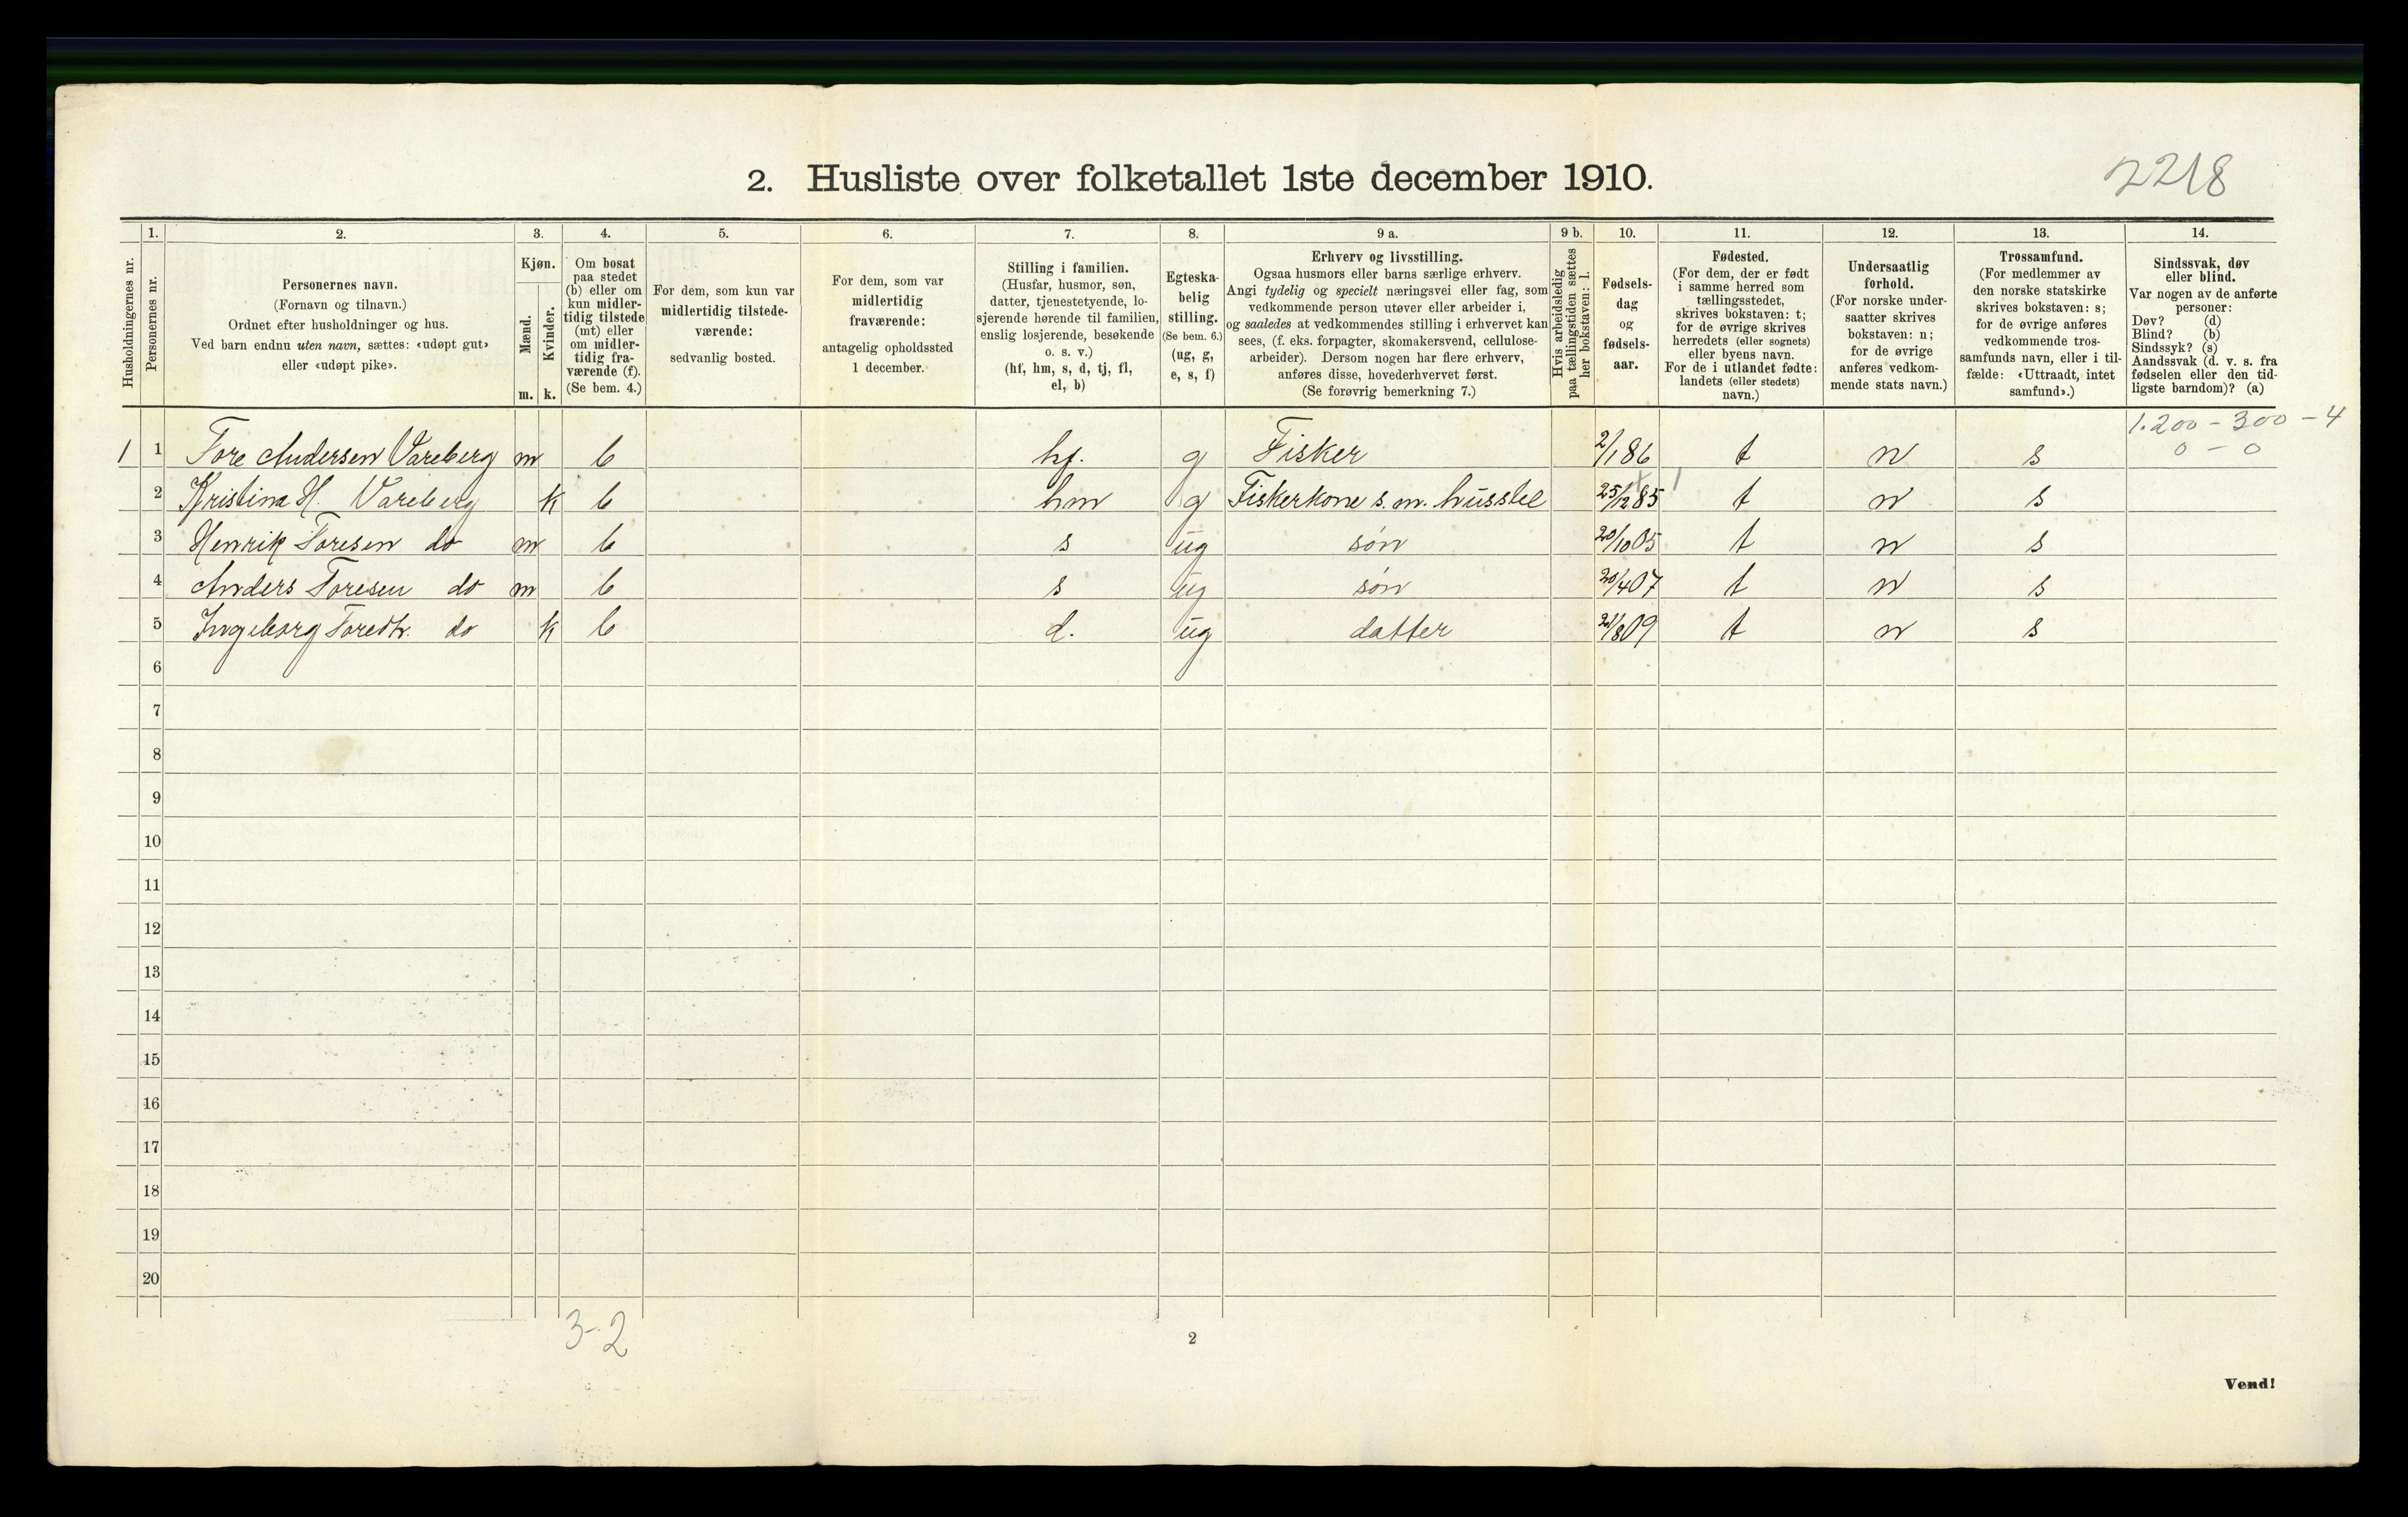 2218
2. Husliste over folketallet 1ste december 1910.
1. 2. 3. 4. 5. 6. 7. 8. 9 a. 9 b. 10. 11. 12. 13. 14.
Husholdningernes nr.
Personernes nr.
Personernes navn.
(Fornavn og tilnavn.)
Ordnet efter husholdninger og hus.
Ved barn endnu uten navn, sættes: «udøpt gut»
eller «udøpt pike».
Kjøn.
Mænd.
Kvinder.
m. k.
Om bosat
paa stedet
(b) eller om
kun midler-
tidig tilstede
(mt) eller
om midler-
tidig fra-
værende (f).
(Se bem. 4.)
For dem, som kun var
midlertidig tilstede-
værende:
sedvanlig bosted.
For dem, som var
midlertidig
fraværende:
antagelig opholdssted
1 december.
Stilling i familien.
(Husfar, husmor, søn,
datter, tjenestetyende, lo-
sjerende hørende til familien,
enslig losjerende, besøkende
o. s. v.)
(hf, hm, s, d, tj, fl,
el, b)
Egteska-
belig
stilling.
(Se bem. 6.)
(ug, g,
e, s, f)
Erhverv og livsstilling.
Ogsaa husmors eller barns særlige erhverv.
Angi tydelig og specielt næringsvei eller fag, som
vedkommende person utøver eller arbeider i,
og saaledes at vedkommendes stilling i erhvervet kan
sees, (f. eks. forpagter, skomakersvend, cellulose-
arbeider). Dersom nogen har flere erhverv,
anføres disse, hovederhvervet først.
(Se forøvrig bemerkning 7.)
Hvis arbeidsledig
paa tællingstiden sættes
her bokstaven: l.
Fødsels-
dag
og
fødsels-
aar.
Fødested.
(For dem, der er født
i samme herred som
tællingsstedet,
skrives bokstaven: t;
for de øvrige skrives
herredets (eller sognets)
eller byens navn.
For de i utlandet fødte:
landets (eller stedets)
navn.)
Undersaatlig
forhold.
(For norske under-
saatter skrives
bokstaven: n;
for de øvrige
anføres vedkom-
mende stats navn.)
Trossamfund.
(For medlemmer av
den norske statskirke
skrives bokstaven: s;
for de øvrige anføres
vedkommende tros-
samfunds navn, eller i til-
fælde: «Uttraadt, intet
samfund».)
Sindssvak, døv
eller blind.
Var nogen av de anførte
personer:
Døv? (d)
Blind? (b)
Sindssyk? (s)
Aandssvak (d. v. s. fra
fødselen eller den tid-
ligste barndom)? (a)
1.200 - 300 - 4
1 1 Tore Andersen Vareberg m b hf. g Fisker 2/1 86 t n s 0 - 0
2 Kristina H. Vareberg k b hm g Fiskerkone s. m. husstel 25/12 85 t n s
3 Henrik Toresen do m b s ug søn 20/10 05 t n s
4 Anders Toresen do m b s ug søn 20/4 07 t n s
5 Ingeborg Toredtr. do k b d. ug datter /8 09 t n s
6
7
8
9
10
11
12
13
14
15
16
17
18
19
20
3-2
2
Vend!